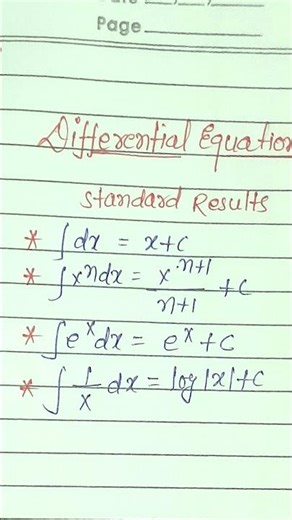 Page
Differential Equation
Standard Results
* ∫dx = x+c
* ∫xⁿdx = xⁿ⁺¹/n+1 + c
* ∫eˣdx = eˣ+c
* ∫1/x dx = log|x|+c